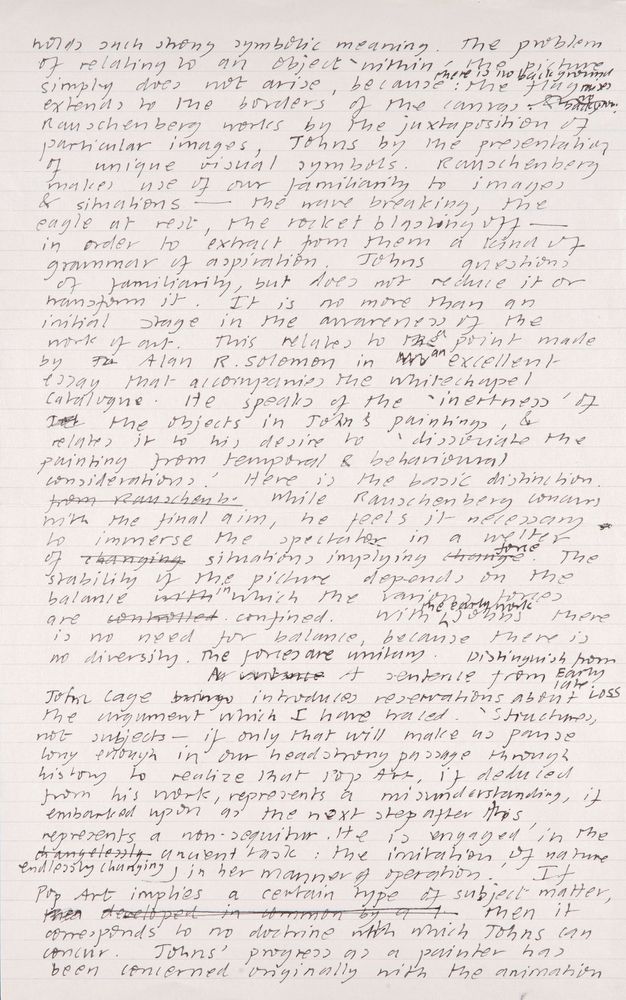 holds such strong symbolic meaning. The problem
of relating to an object 'within' the picture
simply does not arise, because: the flag
there is no background
extends to the borders of the canvas
Rauschenberg works by the juxtaposition of
particular images, Johns by the presentation
of unique visual symbols. Rauschenberg
makes use of our familiarity to images
& situations — the wave breaking, the
eagle at rest, the rocket blasting off —
in order to extract from them a kind of
grammar of aspiration. Johns questions
of familiarity, but does not reduce it or
transform it. It is no more than an
initial stage in the awareness of the
work of art. This relates to the point made
by Alan R. Solomon in an excellent
essay that accompanies the Whitechapel
Catalogue. He speaks of the 'inertness' of
the objects in John's paintings, &
relates it to his desire to 'dissociate the
painting from temporal & behavioural
considerations.' Here is the basic distinction.
from Rauschenb. While Rauschenberg concurs
with the final aim, he feels it necessary
to immerse the spectator in a welter
of changing situations implying change force. The
stability of the picture depends on the
balance within which the various forces
are controlled confined. With the early work Johns there
is no need for balance, because there is
no diversity. The forces are unitary. Distinguish from
A sentence from Early
John Cage brings introduces reservations about late Loss
the argument which I have traced. 'Structures,
not subjects — if only that will make us pause
long enough in our headstrong passage through
history to realize that Pop Art, if deduced
from his work, represents a misunderstanding, if
embarked upon as the next step after this,
represents a non-sequitur. He is engaged in the
changelessly ancient task: the imitation of nature
endlessly changing, in her manner of operation.' If
Pop Art implies a certain type of subject matter,
then developed in common by a then it
corresponds to no doctrine with which Johns can
concur. Johns' progress as a painter has
been concerned originally with the animation